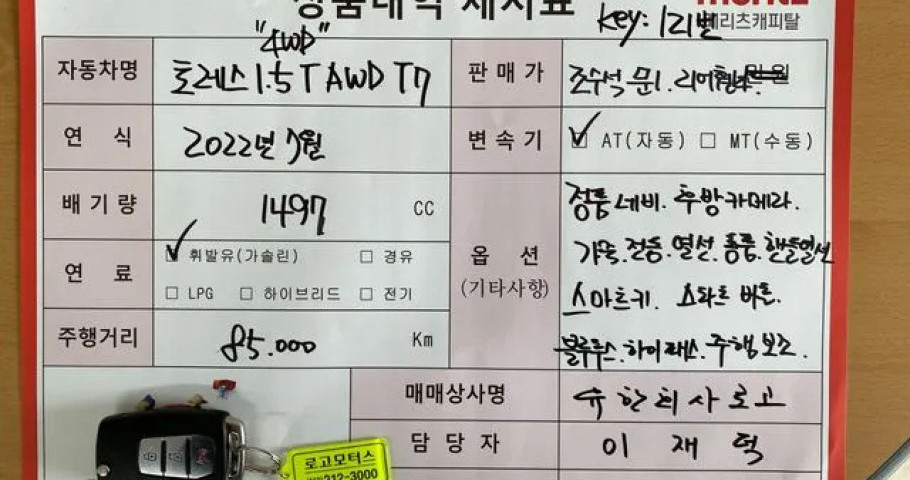 상품내역 제시표
key: 1리벤
메리츠캐피탈
"4WD"
자동차명 토레스 1.5T AWD T7
판매가 조수석-문1. 만원
연식 2022년 7월
변속기 ☑ AT(자동) □ MT(수동)
배기량 1497 CC
연료 ☑ 휘발유(가솔린) □ 경유
□ LPG □ 하이브리드 □ 전기
주행거리 85.000 Km
옵션
(기타사항)
정품네비. 후방카메라.
가죽.전동.열선.통풍.핸들열선
스마트키. 스타트 버튼.
블루투스.하이패스.주행보조.
매매상사명 유한회사로고
담당자 이재덕
로고모터스
212-3000